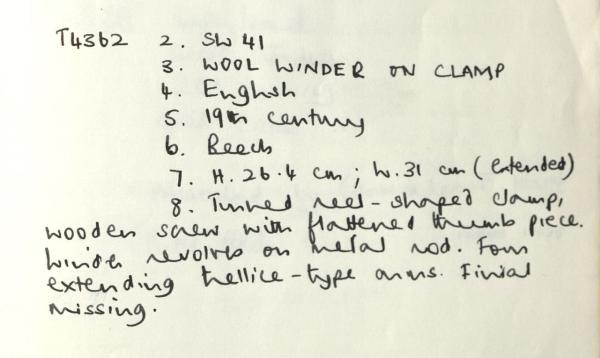 T4362 2. SW 41
3. WOOL WINDER ON CLAMP
4. English
5. 19th century
6. Beech
7. H. 26.4 cm ; W. 31 cm (extended)
8. Turned reel-shaped clamp,
wooden screw with flattened thumb piece.
Winder revolves on metal rod. Four
extending trellice-type arms. Finial
missing.